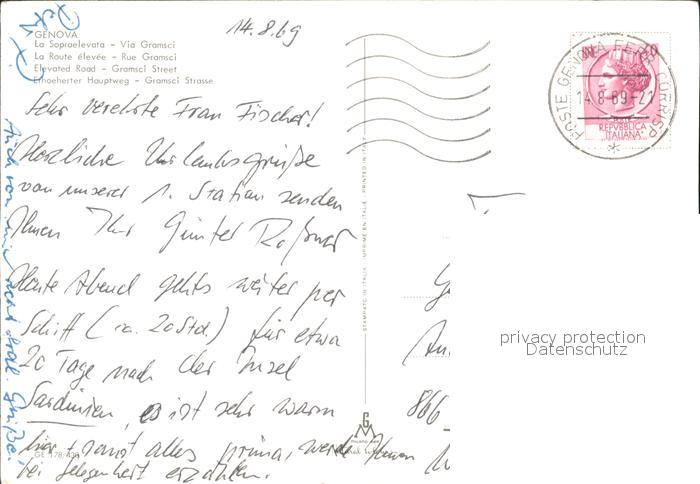 14.8.69
GENOVA
La Sopraelevata - Via Gramsci
La Route élevée - Rue Gramsci
Elevated Road - Gramsci Street
Emoeherter Hauptweg - Gramsci Strasse
Sehr verehrte Frau Fischer!
Herzliche Urlaubsgrüße
von unserer 1. Station senden
Ihnen Ihr Günter
Heute Abend gehts weiter per
Schiff (ca. 20 Std.) für etwa
20 Tage nach der Insel
Sardinien, es ist sehr warm
hier + sonst alles prima, werde Ihnen
bei Gelegenheit erzählen.
Auch von mir recht herzl. Grüße!
GE 178/436
STAMPATO IN ITALIA - IMPRIME EN ITALIE - PRINTED IN ITALY
POSTE GENOVA FERR. CORRISP.
14-8-69-21
REPVBBLICA
ITALIANA
866
privacy protection
Datenschutz